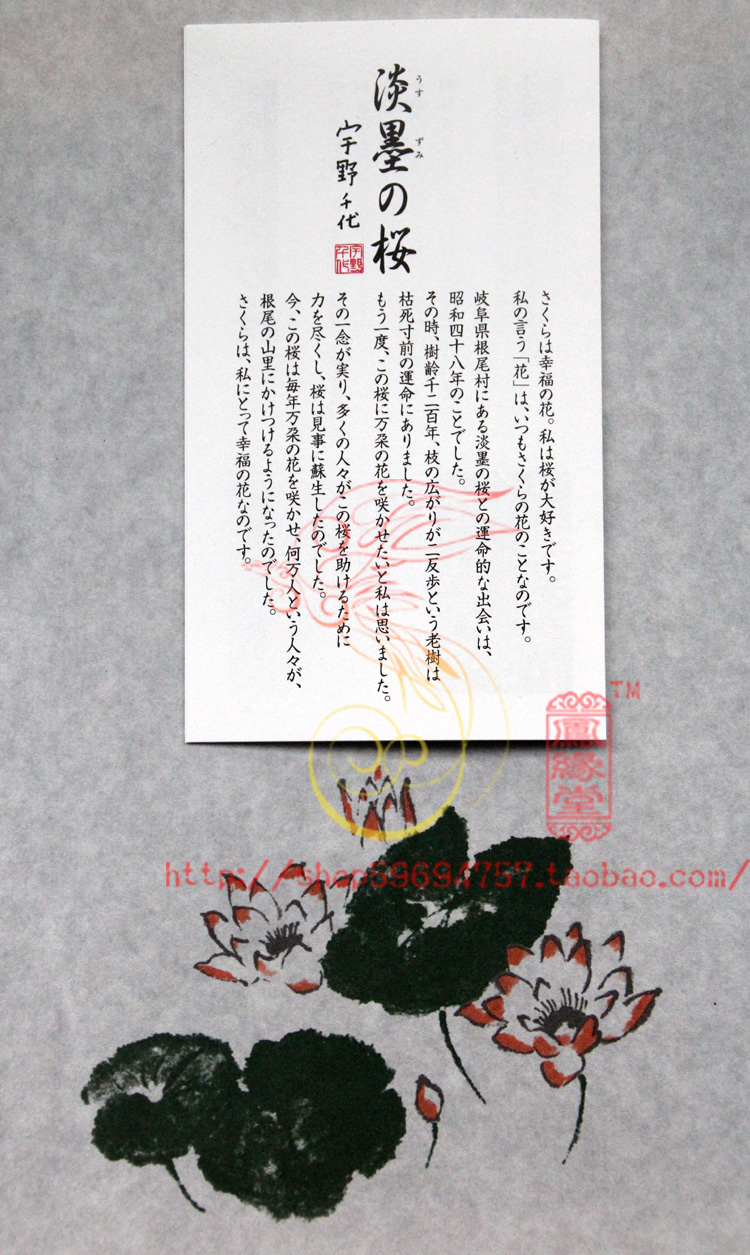 淡墨の桜
うす
ずみ
宇野千代
宇野千代
さくらは幸福の花。私は桜が大好きです。
私の言う「花」は、いつもさくらの花のことなのです。
岐阜県根尾村にある淡墨の桜との運命的な出会いは、
昭和四十八年のことでした。
その時、樹齢千二百年、枝の広がりが二反歩という老樹は
枯死寸前の運命にありました。
もう一度、この桜に万朶の花を咲かせたいと私は思いました。
その一念が実り、多くの人々がこの桜を助けるために
力を尽くし、桜は見事に蘇生したのでした。
今、この桜は毎年万朶の花を咲かせ、何万人という人々が、
根尾の山里にかけつけるようになったのでした。
さくらは、私にとって幸福の花なのです。
鳳緣堂
TM
http://shop59694757.taobao.com/